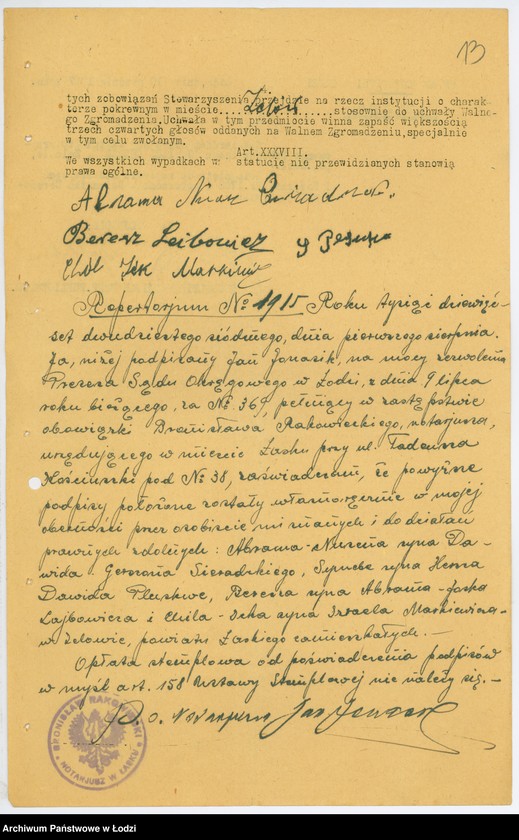 13
tych zobowiązań Stowarzyszenia przejdzie na rzecz instytucji o charak-
torze pokrewnym w mieście.....Zelow.....stosownie do uchwały Walne-
go Zgromadzenia.Uchwała w tym przedmiocie winna zapaść większością
trzech czwartych głosów oddanych na Walnem Zgromadzeniu,specjalnie
w tym celu zwołanym.
Art.XXXVIII.
We wszystkich wypadkach w statucie nie przewidzianych stanowią
prawa ogólne.
Abrama
Beresz Leibowicz
Markiewicz
Repertorjum № 1915 Roku tysiąc dziewięć-
set dwudziestego siódmego, dnia pierwszego sierpnia.
Ja, niżej podpisany Jan Jonasik, na mocy zezwolenia
Prezesa Sądu Okręgowego w Łodzi, z dnia 9 lipca
roku bieżącego, za № 369, pełniący w zastępstwie
obowiązki Bronisława Rakowieckiego, notarjusza,
urzędującego w mieście Łasku przy ul. Tadeusza
Kościuszki pod № 38, zaświadczam, że powyższe
podpisy położone zostały własnoręcznie w mojej
obecności przez osobiście mi znanych i do działań
prawnych zdolnych: Abrama-Nusena syna Da-
wida Gerszona Sieradzkiego, syna Hersza
Dawida Pluskwe, Beresza syna Abrama-Joska
Lajbowicza i Chila-Icka syna Izraela Markiewicza-
w Zelowie, powiatu Łaskiego zamieszkałych.—
Opłata stemplowa od poświadczenia podpisów
w myśl art. 158 Ustawy Stemplowej nie należy się.—
p. o. Notarjusza Jan Jonasik
BRONISŁAW RAKOWIECKI
NOTARJUSZ W ŁASKU
Archiwum Państwowe w Łodzi